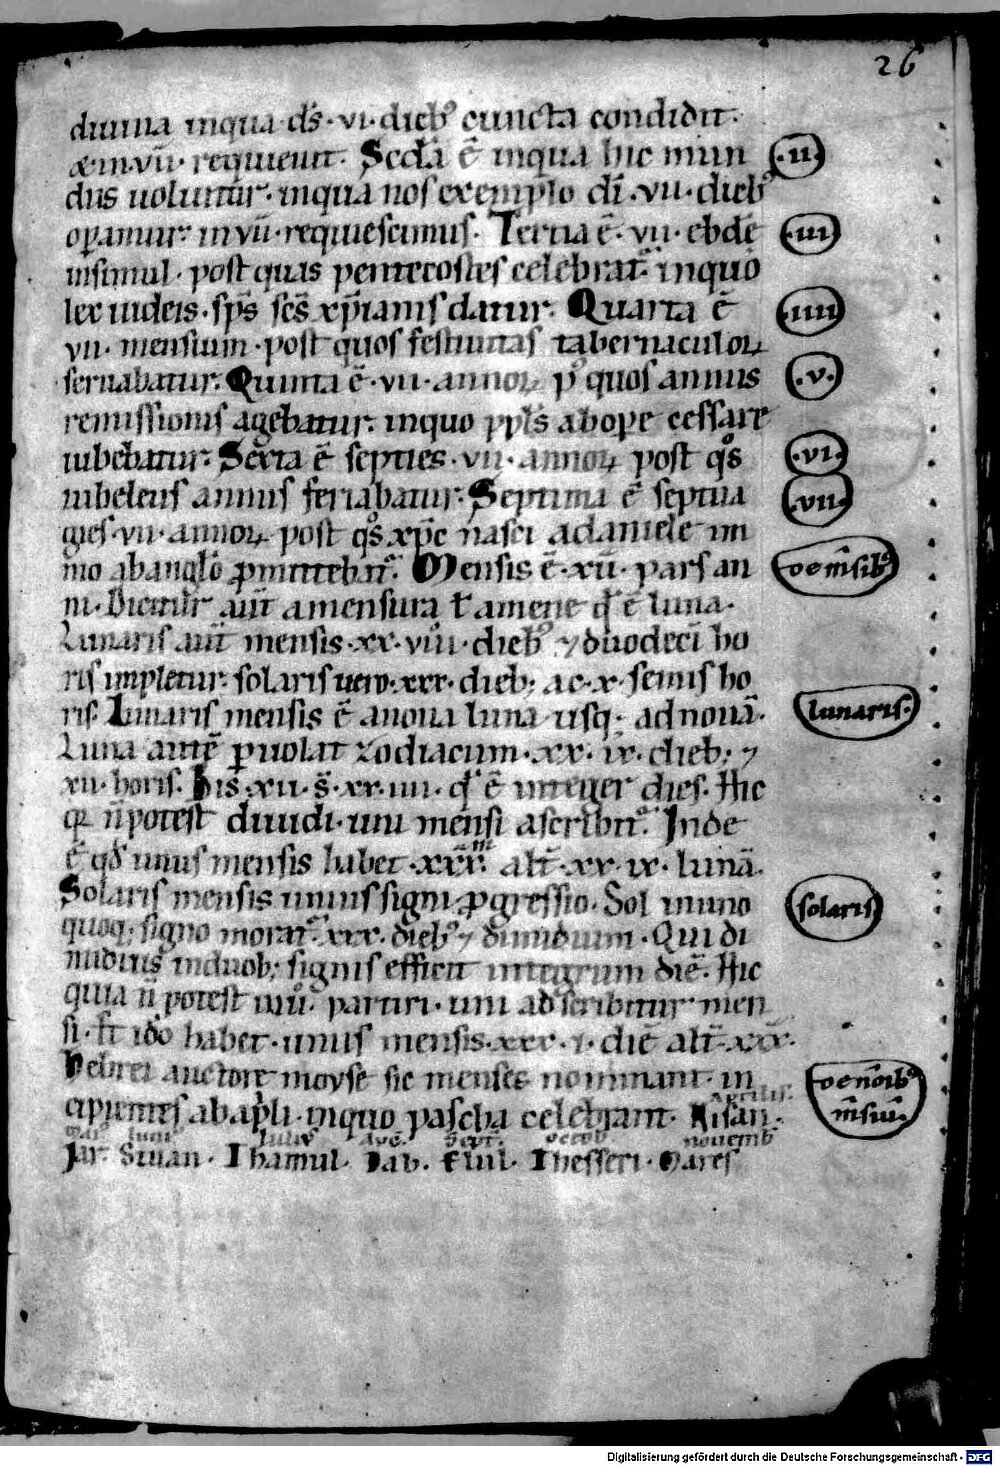 26
diuina inqua ds̄ · vi · dieb⁹ cuncta condidit ·
& in vii · requieuit · Secd̄a ē inqua hic mun
·ii·
dus uoluitur · inqua nos exemplo dī · vii · dieb⁹
op̄amur · in vii · requiescimus · Tertia ē · vii · ebdē
·iii·
insimul · post quas pentecostes celebrat̄ · inquo
lex iudeis · sp̄s sc̄s xp̄ianis datur · Quarta ē
·iiii·
vii · mensium · post quos festiuitas tabernaculoꝝ
seruabatur · Quinta ē · vii · annoꝝ p⁹ quos annus
·v·
remissionis agebatur · inquo ppl̄s abope cessare
iubebatur · Sexta ē septies · vii · annoꝝ post qͦs
·vi·
iubeleus annus feriabatur · Septima ē septua
·vii·
gies · vii · annoꝝ post qͦs xp̄c nasci adaniele im
mo abanglō ꝓmittebat̄ · Mensis ē · xii · pars an
De m̄sib⁹
ni · Dicitur aut̄ amensura ł amene qͥ ē luna ·
Lunaris aut̄ mensis · xx · viiii · dieb⁹ ⁊ duodecī ho
ris impletur · solaris uero · xxx · dieb; ac · x · semis ho
ris · Lunaris mensis ē anoua luna usq; ad nouā ·
lunaris ·
Luna autē ꝑuolat zodiacum · xx · ix · dieb; ⁊
xii · horis · Bis · xii · s̄ · xx · iiii · qͥ ē integer dies · Hic
qꝛ n̄ potest diuidi · uni mensi ascribit̄ · Inde
ē qd̄ unus mensis habet · xxx · alt̄ · xx · ix · lunā ·
Solaris mensis unius signi ꝓgressio · Sol in uno
solaris
quoq; signo morat̄ · xxx · dieb⁹ ⁊ dimidium · Qui di
midius induob; signis efficit integrum diē · Hic
quia n̄ potest partiri · uni adscribitur men
si · s̄t idō habet · unus mensis · xxx · i · diē alt̄ · xxx ·
Hebrei auctore moyse sic menses nominant · in
De nōib⁹
m̄siū ·
cipientes abapl̄i · inquo pascha celebrant · Nisan ·
aprilis ·
mai⁹ iuni⁹ iuli⁹ aug̅ sept̅ octob̅ nouemb̅
Jar · Siuan · Thamul · Dab · Elul · Thesseri · Mares
Digitalisierung gefördert durch die Deutsche Forschungsgemeinschaft - DFG